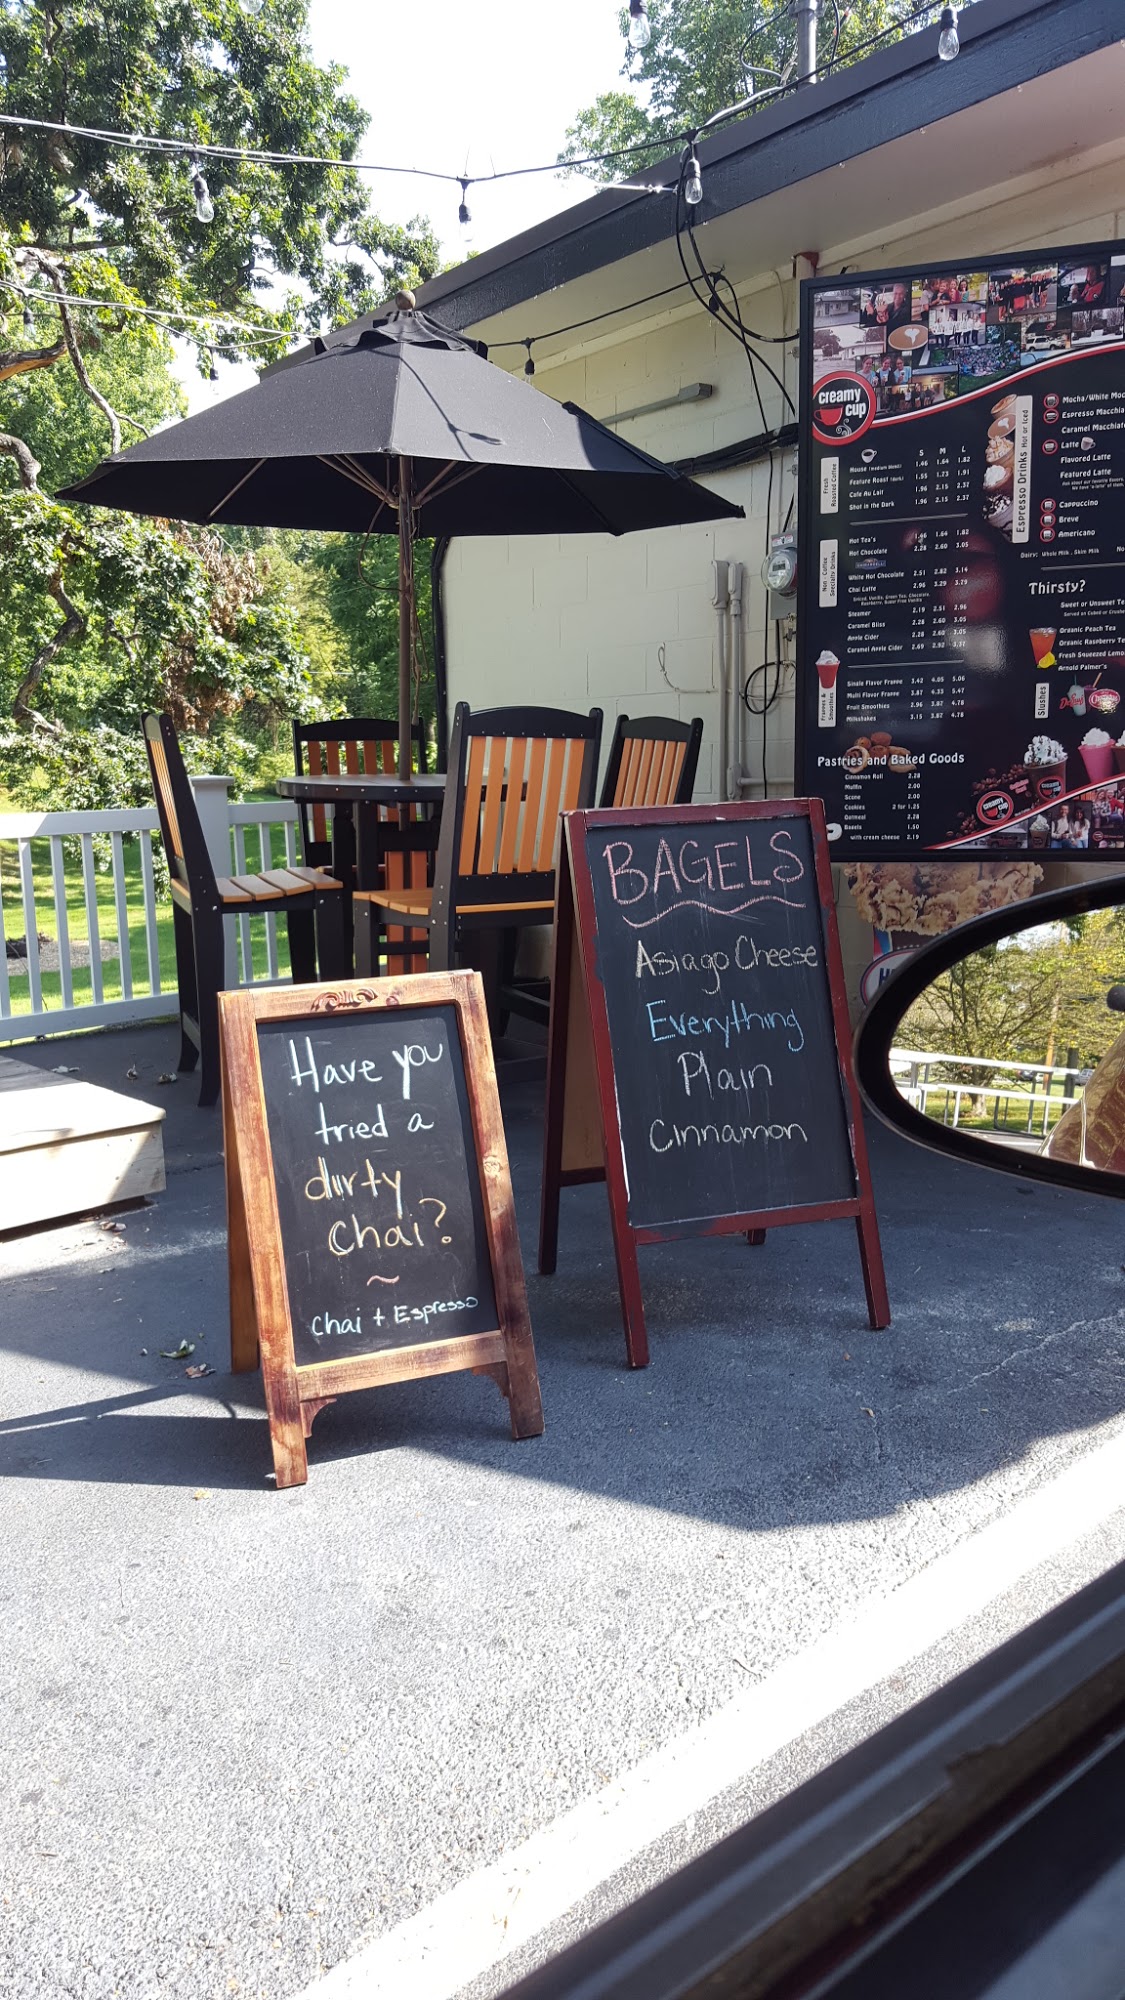 Have you
tried a
dirty
Chai?
~
Chai + Espresso
BAGELS
Asiago Cheese
Everything
Plain
Cinnamon
creamy
cup
S M L
Fresh
Roasted Coffee
House 1.46 1.64 1.82
Feature Roast 1.55 1.73 1.91
Cafe Au Lait 1.96 2.15 2.37
Shot in the Dark 1.96 2.15 2.37
Non - Coffee
Specialty Drinks
Hot Tea's 1.46 1.64 1.82
Hot Chocolate 2.28 2.60 3.05
White Hot Chocolate 2.51 2.82 3.14
Chai Latte 2.96 3.29 3.79
Steamer 2.19 2.51 2.96
Caramel Bliss 2.28 2.60 3.05
Apple Cider 2.28 2.60 3.05
Caramel Apple Cider 2.69 2.92 3.37
Frappes &
Smoothies
Single Flavor Frappe 3.42 4.05 5.06
Multi Flavor Frappe 3.87 4.33 5.47
Fruit Smoothies 2.96 3.87 4.78
Milkshakes 3.15 3.87 4.78
Pastries and Baked Goods
Cinnamon Roll 2.28
Muffin 2.00
Scone 2.00
Cookies 2 for 1.25
Oatmeal 2.28
Bagels 1.50
with cream cheese 2.19
Espresso Drinks Hot or Iced
Mocha/White Moc
Espresso Macchia
Caramel Macchiat
Latte
Flavored Latte
Featured Latte
Cappuccino
Breve
Americano
Dairy: Whole Milk, Skim Milk No
Thirsty?
Sweet or Unsweet Te
Served on Cubed or Crushe
Organic Peach Tea
Organic Raspberry Te
Fresh Squeezed Lemo
Arnold Palmer's
Slushes
creamy
cup